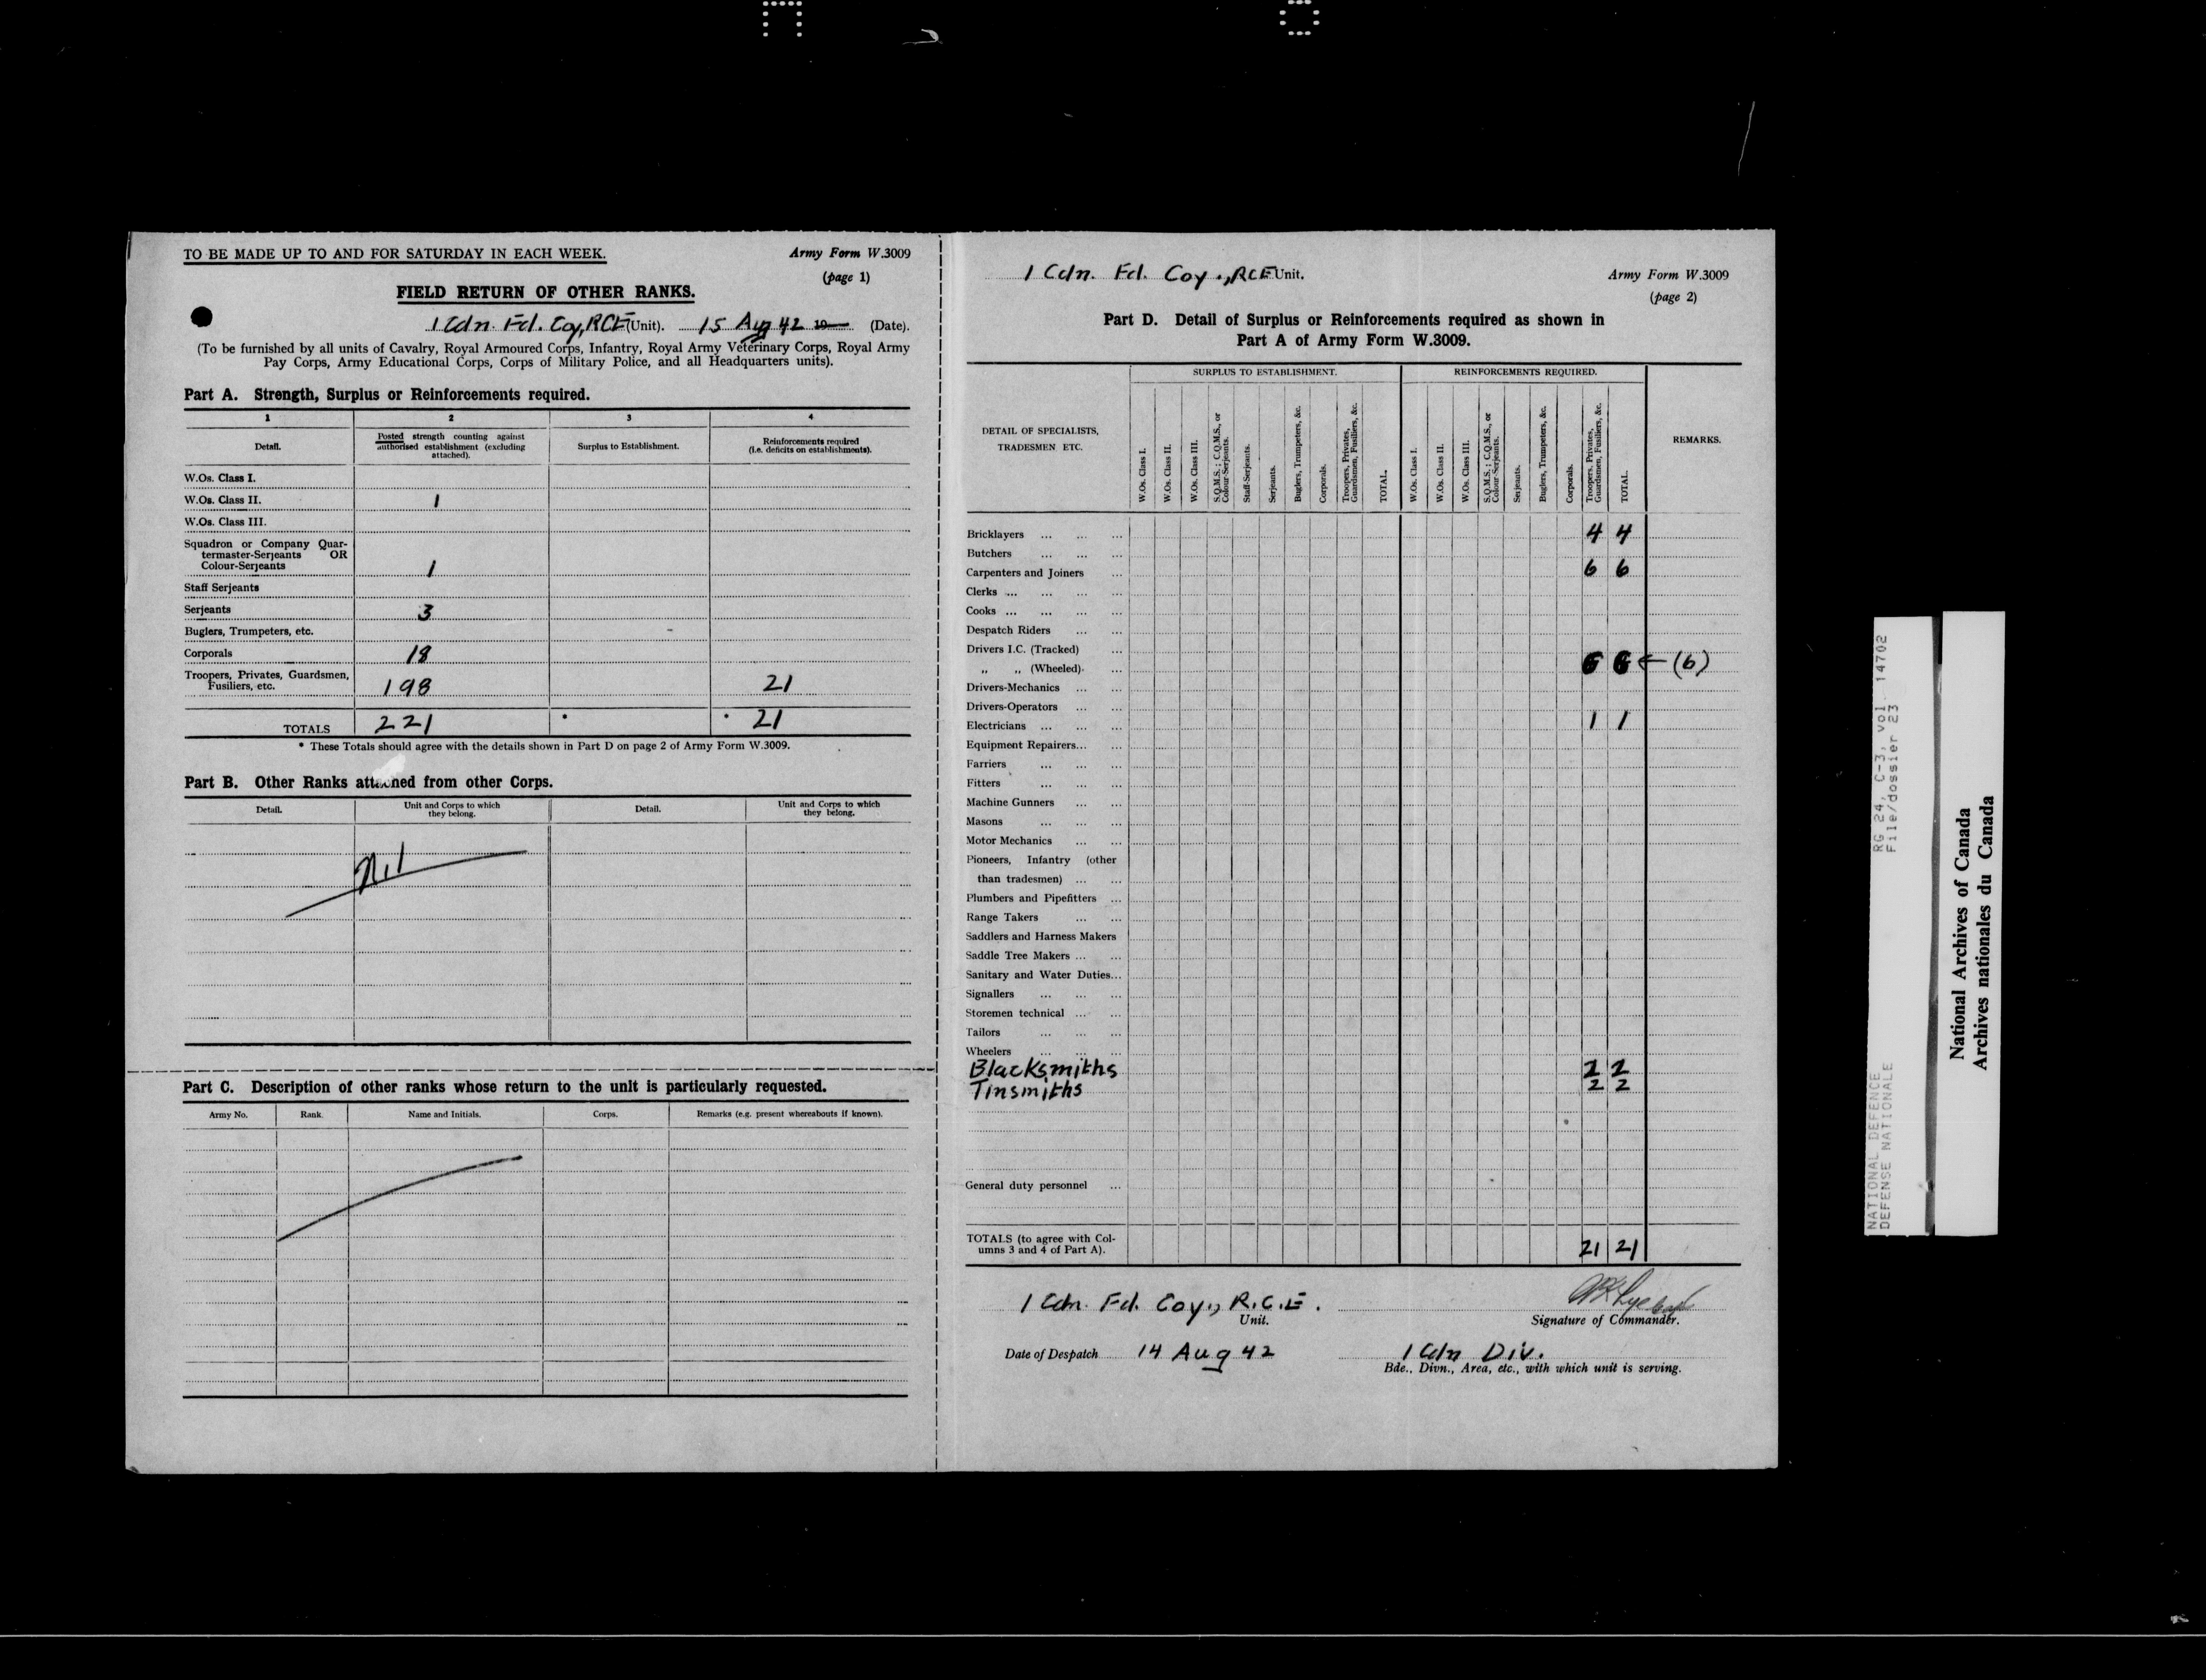 TO BE MADE UP TO AND FOR SATURDAY IN EACH WEEK.
Army Form W.3009
(page 1)
FIELD RETURN OF OTHER RANKS.
1 Cdn. Fd. Coy, RCE (Unit). 15 Aug 42 19 (Date).
(To be furnished by all units of Cavalry, Royal Armoured Corps, Infantry, Royal Army Veterinary Corps, Royal Army
Pay Corps, Army Educational Corps, Corps of Military Police, and all Headquarters units).
Part A. Strength, Surplus or Reinforcements required.
1 2 3 4
Detail.
Posted strength counting against
authorised establishment (excluding
attached).
Surplus to Establishment.
Reinforcements required
(i.e. deficits on establishments).
W.Os. Class I.
W.Os. Class II. 1
W.Os. Class III.
Squadron or Company Quar-
termaster-Serjeants OR
Colour-Serjeants 1
Staff Serjeants
Serjeants 3
Buglers, Trumpeters, etc.
Corporals 18
Troopers, Privates, Guardsmen,
Fusiliers, etc. 198 21
TOTALS 221 * * 21
* These Totals should agree with the details shown in Part D on page 2 of Army Form W.3009.
Part B. Other Ranks attached from other Corps.
Detail.
Unit and Corps to which
they belong.
Detail.
Unit and Corps to which
they belong.
Nil
Part C. Description of other ranks whose return to the unit is particularly requested.
Army No. Rank. Name and Initials. Corps. Remarks (e.g. present whereabouts if known).
1 Cdn. Fd. Coy., RCE Unit.
Army Form W.3009
(page 2)
Part D. Detail of Surplus or Reinforcements required as shown in
Part A of Army Form W.3009.
DETAIL OF SPECIALISTS,
TRADESMEN ETC.
SURPLUS TO ESTABLISHMENT.
W.Os. Class I.
W.Os. Class II.
W.Os. Class III.
S.Q.M.S.; C.Q.M.S., or
Colour-Serjeants.
Staff-Serjeants.
Serjeants.
Buglers, Trumpeters, &c.
Corporals.
Troopers, Privates,
Guardsmen, Fusiliers, &c.
TOTAL.
REINFORCEMENTS REQUIRED.
W.Os. Class I.
W.Os. Class II.
W.Os. Class III.
S.Q.M.S.; C.Q.M.S., or
Colour-Serjeants.
Serjeants.
Buglers, Trumpeters, &c.
Corporals.
Troopers, Privates,
Guardsmen, Fusiliers, &c.
TOTAL.
REMARKS.
Bricklayers ... ... ... 4 4
Butchers ... ... ...
Carpenters and Joiners ... 6 6
Clerks ... ... ... ...
Cooks ... ... ... ...
Despatch Riders ... ...
Drivers I.C. (Tracked) ...
„ „ (Wheeled) ... 6 6 ← (6)
Drivers-Mechanics ... ...
Drivers-Operators ... ...
Electricians ... ... ... 1 1
Equipment Repairers... ...
Farriers ... ... ...
Fitters ... ... ...
Machine Gunners ... ...
Masons ... ... ...
Motor Mechanics ... ...
Pioneers, Infantry (other
than tradesmen) ... ...
Plumbers and Pipefitters ...
Range Takers ... ...
Saddlers and Harness Makers
Saddle Tree Makers ... ...
Sanitary and Water Duties...
Signallers ... ... ...
Storemen technical ... ...
Tailors ... ... ...
Wheelers ... ... ...
Blacksmiths 2 2
Tinsmiths 2 2
General duty personnel ...
TOTALS (to agree with Col-
umns 3 and 4 of Part A). 21 21
1 Cdn. Fd. Coy., R.C.E.
Unit.
Signature of Commander.
Date of Despatch 14 Aug 42
1 Cdn Div.
Bde., Divn., Area, etc., with which unit is serving.
NATIONAL DEFENCE RG 24, C-3, vol. 14702
DEFENSE NATIONALE File/dossier 23
National Archives of Canada
Archives nationales du Canada